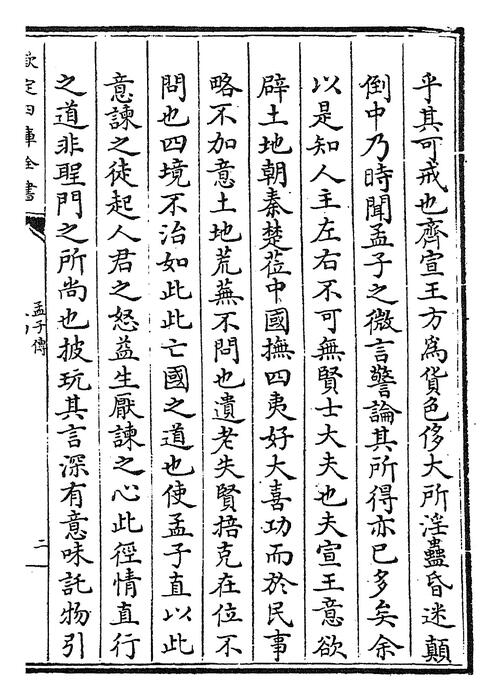 乎其可戒也齊宣王方為貨色侈大所淫蠱昏迷顛
倒中乃時聞孟子之微言警論其所得亦已多矣余
以是知人主左右不可無賢士大夫也夫宣王意欲
辟土地朝秦楚莅中國撫四夷好大喜功而於民事
略不加意土地荒蕪不問也遺老失賢掊克在位不
問也四境不治如此此亡國之道也使孟子直以此
意諫之徒起人君之怒益生厭諫之心此徑情直行
之道非聖門之所尚也披玩其言深有意味託物引
欽定四庫全書
孟子傳
二